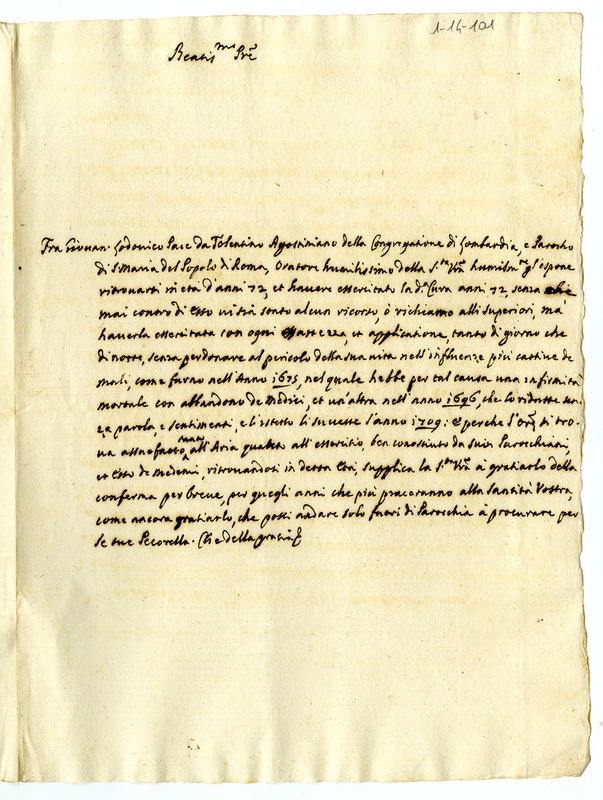 1-14-101
Beatis.mo Pre
Fra Giovan. Lodovico Pace da Tolentino Agostiniano della Congregatione di Lombardia, e Parocho
di S. Maria del Popolo di Roma, Oratore humilissimo della S.tà Vra humilm.te gl'espone
ritrovarsi in età d'anni 72, et havere essercitato la d.a Cura anni 72, senza che
mai contro di esso vi sia stato alcun ricorso, ò richiamo alli superiori, ma
haverla essercitata con ogni esattezza, et applicatione, tanto di giorno che
di notte, senza perdonare al pericolo della sua vita nell'influenze più cattive de
mali, come furno nell'Anno 1675, nel quale hebbe per tal causa una infirmità
mortale con abbandono de Medici, et un'altra nell'anno 1696, che lo ridusse sen-
za parola, e sentimenti, e l'istesso li successe l'anno 1709: e perche l'Ore si tro-
va assuefatto, all'Aria quanto all'essercitio, ben conosciuto da suoi Parochiani,
et esso de medemi, ritrovandosi in detta età, supplica la S.tà Vra à gratiarlo della
conferma per breve, per quegli anni che più piaceranno alla Santità Vostra,
come ancora gratiarlo, che possi andare solo fuori di Parochia à procurare per
le sue Pecorelle. Che della gratia